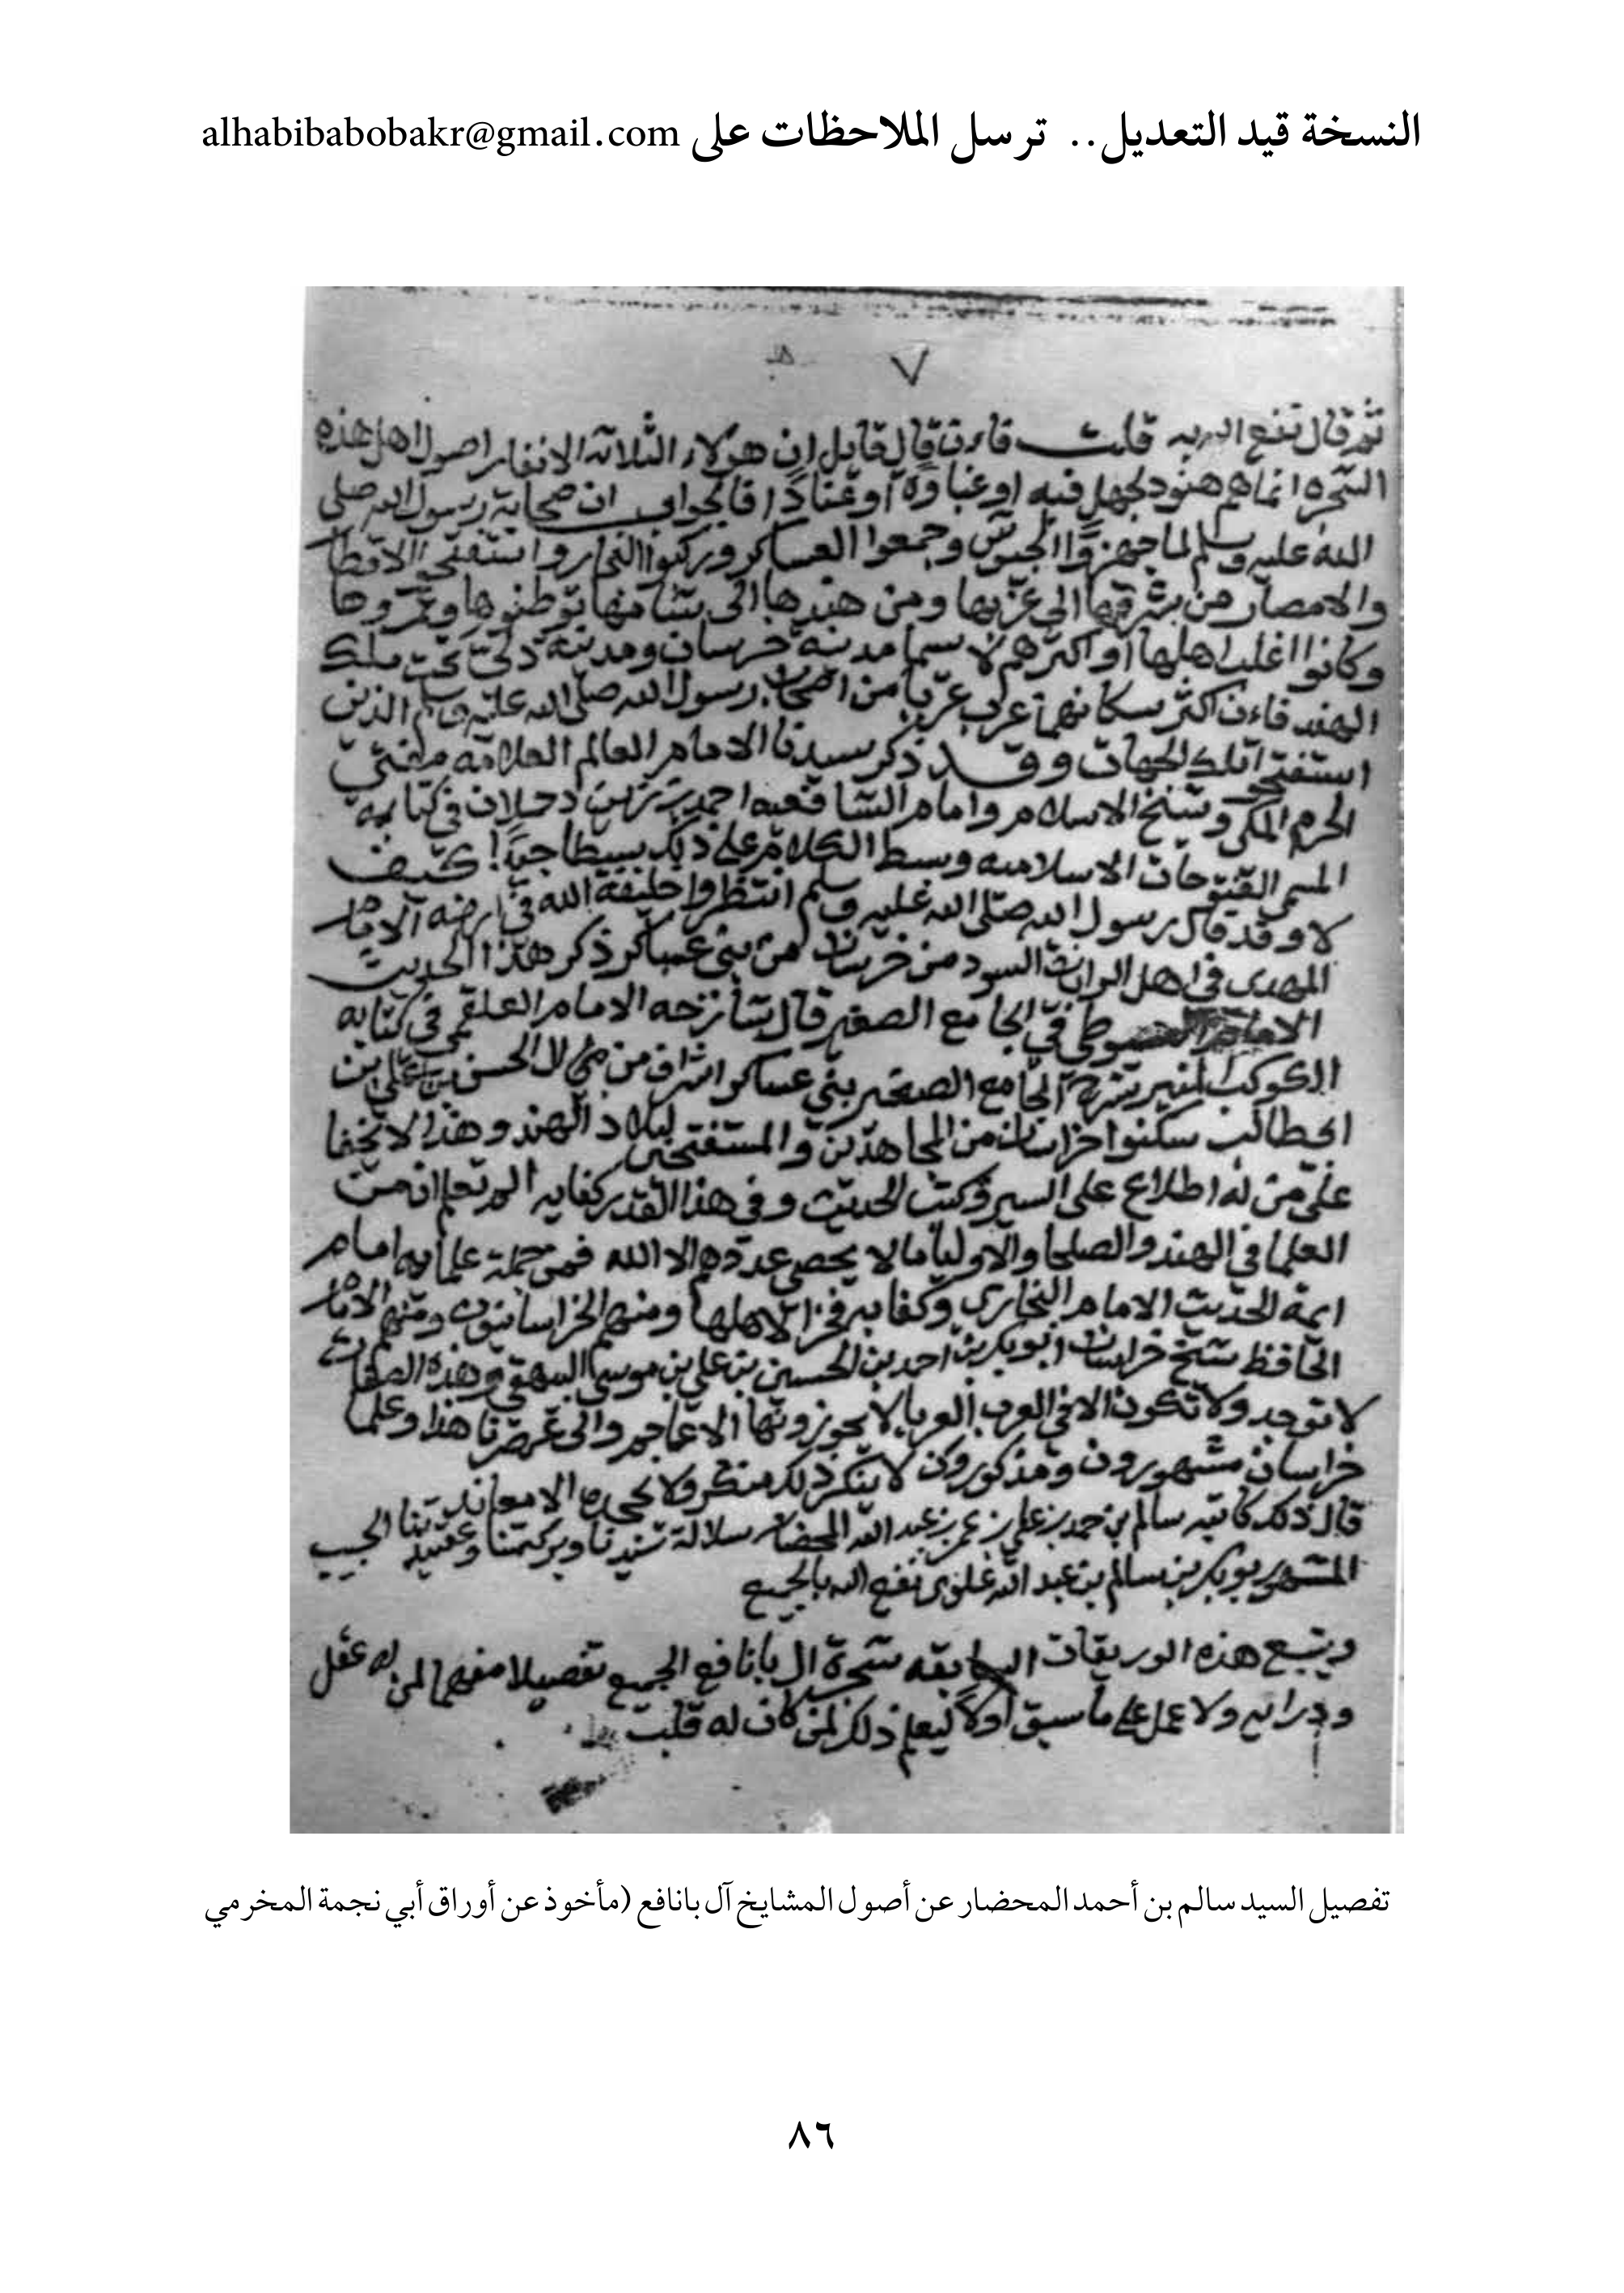 النسخة قيد التعديل.. ترسل الملاحظات على alhabibabobakr@gmail.com
٧
ثم قال نفع الله به قلت فاءن قال قايل ان هؤلاء الثلاثه الانفار اصول اهل هذه
الشجره انماهم هنود لجهل فيه او غباوة او عنادًا فالجواب ان صحابة رسول الله صلى
الله عليه وسلم لما جهزوا الجيوش وجمعوا العساكر وركبوا البحار واستفتحوا الاقطار
والامصار من شرقها الى غربها ومن هندها الى شامها توطنوها وعمروها
وكانوا اغلب اهلها او اكثرهم لا سيما مدينة خرسان ومدينة دلي تحت ملك
الهند فاءن اكثر سكانهما عرب عربا من اصحاب رسول الله صلى الله عليه وسلم الذين
استفتحوا تلك الجهات وقد ذكر سيدنا الامام العالم العلامه مفتي
الحرم المكي وشيخ الاسلام وامام الشافعيه احمد بن زين دحلان في كتابه
المسمى الفتوحات الاسلاميه وبسط الكلام على ذلك بسيطا جيدًا كيف
لا وقد قال رسول الله صلى الله عليه وسلم انتظروا خليفة الله في ارضه الامام
المهدي في اهل الرايات السود من خرسان من بني عساكر ذكر هذا الحديث
الامام في الجامع الصغير قال شارحه الامام العلقمي في كتابه
الكوكب المنير شرح الجامع الصغير بني عساكر اشراف من ال الحسن بن علي بن
ابيطالب سكنوا خراسان من المجاهدين والمستفتحين لبلاد الهند وهذا لا يخفا
على من له اطلاع على السير وكتب الحديث وفي هذا القدر كفايه الم تعلم ان من
العلما في الهند والصلحا والاوليا ما لا يحصي عددهم الا الله فمن جملة علمايه امام
ايمة الحديث الامام البخاري وكفا به فخرًا لاهلها ومنهم الخراسانيون ومنهم الامام
الحافظ شيخ خراسان ابوبكر بن احمد بن الحسين بن علي بن موسى البيهقي وهذه الصفات
لا توجد ولا تكون الا في العرب العربا لا يحوزونها الاعاجم والى عصرنا هذا وعلما
خراسان مشهورون ومذكورون لا ينكر ذلك منكر ولا يجحده الا معاند
قال ذلك كاتبه سالم بن احمد بن علي بن عمر بن عبد الله المحضار سلالة سيدنا وبركتنا وعقيدتنا الحبيب
المشهور بوبكر بن سالم بن عبد الله علوي نفع الله بالجميع
ويتبع هذه الوريقات السابقه شجرة ال بانافع الجميع تفصيلا مفهما لمن له عقل
ودرايه ولا عمل على ما سبق اولًا ليعلم ذلك لمن كان له قلب
تفصيل السيد سالم بن أحمد المحضار عن أصول المشايخ آل بانافع (مأخوذ عن أوراق أبي نجمة المخرمي
٨٦